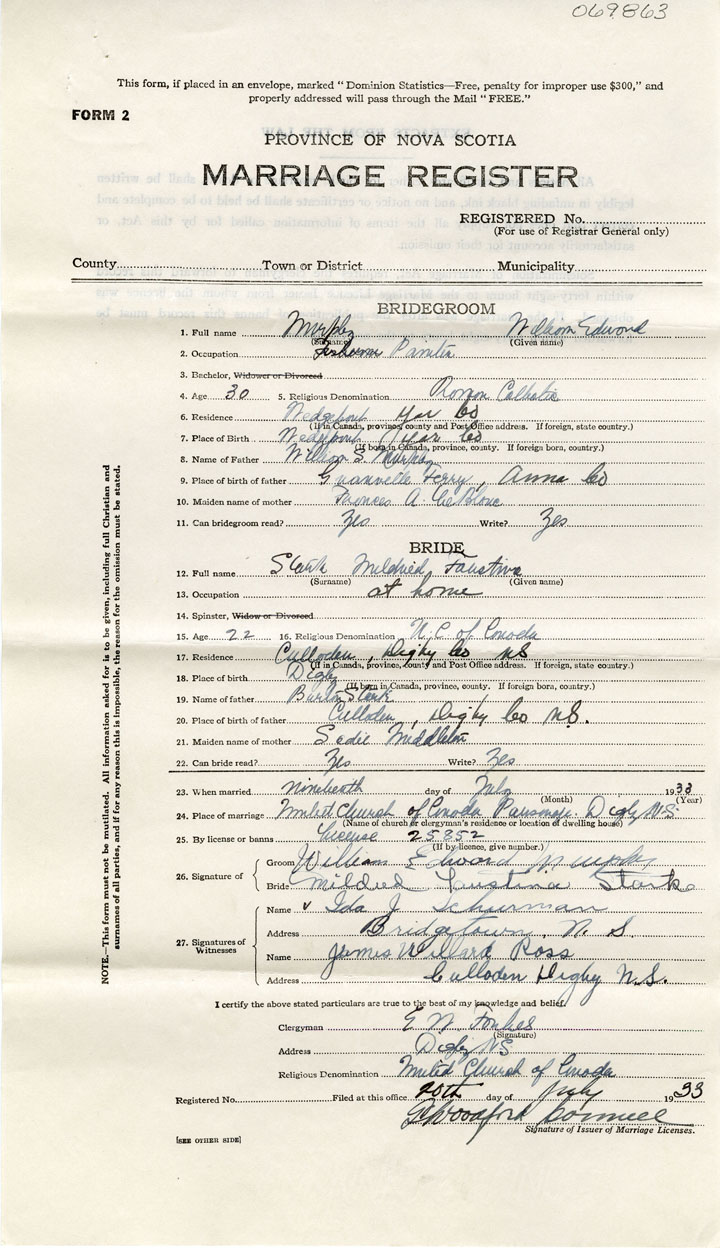 069863
This form, if placed in an envelope, marked "Dominion Statistics—Free, penalty for improper use $300," and
properly addressed will pass through the Mail "FREE."
FORM 2
PROVINCE OF NOVA SCOTIA
MARRIAGE REGISTER
REGISTERED No.
(For use of Registrar General only)
County Town or District Municipality
BRIDEGROOM
1. Full name Murphy William Edward
(Surname) (Given name)
2. Occupation Painter
3. Bachelor, Widower or Divorced
4. Age 30 5. Religious Denomination Roman Catholic
6. Residence Wedgeport Yar Co
(If in Canada, province, county and Post Office address. If foreign, state country.)
7. Place of Birth Wedgeport Yar Co
(If born in Canada, province, county. If foreign born, country.)
8. Name of Father William S. Murphy
9. Place of birth of father Granville Ferry, Anna Co
10. Maiden name of mother Frances A. LeBlanc
11. Can bridegroom read? Yes Write? Yes
BRIDE
12. Full name Stark Mildred Faustina
(Surname) (Given name)
13. Occupation at home
14. Spinster, Widow or Divorced
15. Age 22 16. Religious Denomination U.C. of Canada
17. Residence Culloden, Digby Co NS
(If in Canada, province, county and Post Office address. If foreign, state country.)
18. Place of birth Digby
(If born in Canada, province, county. If foreign born, country.)
19. Name of father Stark
20. Place of birth of father Culloden, Digby Co N.S.
21. Maiden name of mother Sadie Middleton
22. Can bride read? Yes Write? Yes
23. When married nineteenth day of July 1933
(Month) (Year)
24. Place of marriage United Church of Canada Parsonage Digby N.S.
(Name of church or clergyman's residence or location of dwelling house)
25. By license or banns License 25852
(If by licence, give number.)
26. Signature of Groom William Edward Murphy
Bride Mildred Faustina Stark
27. Signatures of Witnesses
Name Ida J Schurman
Address Bridgetown, N. S
Name James Willard Ross
Address Culloden Digby N.S.
I certify the above stated particulars are true to the best of my knowledge and belief.
Clergyman E. W. Forbes
(Signature)
Address Digby NS
Religious Denomination United Church of Canada
Registered No. Filed at this office 20th day of July 1933
Signature of Issuer of Marriage Licenses.
[SEE OTHER SIDE]
NOTE.—This form must not be mutilated. All information asked for is to be given, including full Christian and
surnames of all parties, and if for any reason this is impossible, the reason for the omission must be stated.